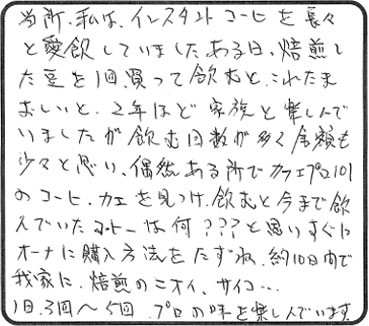 当所、私は、インスタントコーヒを長々
と愛飲していました、ある日、焙煎し
た豆を1回、買って飲むと、これたま
おいしいと、2年ほど家族と楽しんで
いましたが飲む回数が多く金額も
少々と思い、偶然ある所でカフェプロ101
のコーヒ、カフェを見つけ、飲むと今まで飲
んでいたコーヒーは何???と思いすぐに
オーナに購入方法をたずね、約10日内で
我家に、焙煎のニオイ、サイコ…
1日、3回〜5回 プロの味を楽しんでいます